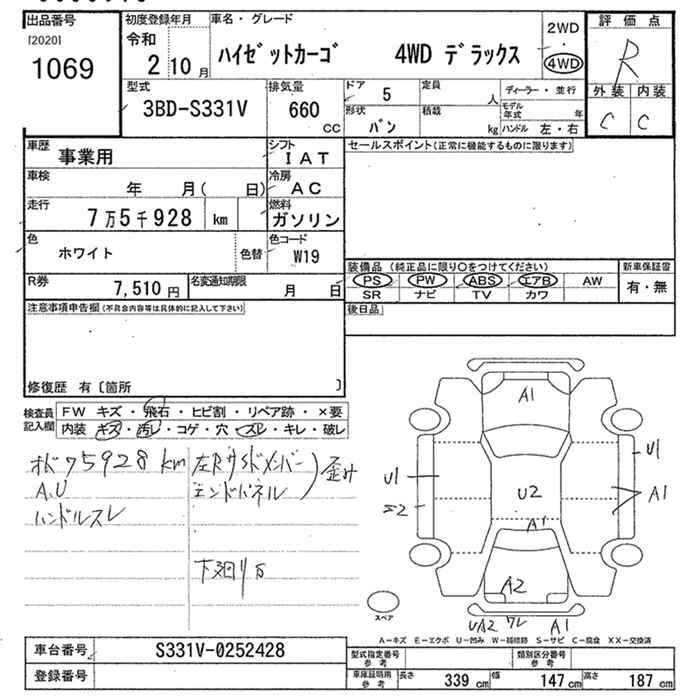 出品番号
[2020]
1069
初度登録年月
令和
2 10 月
車名・グレード
ハイゼットカーゴ 4WD デラックス
2WD
・
4WD
評価点
R
外装 内装
C C
型式
3BD-S331V
排気量
660
CC
ドア
5
定員
人
形状
バン
積載
kg
ディーラー・並行
モデル年式 年
ハンドル 左・右
車歴
事業用
シフト
IAT
車検
年 月( 日)
冷房
AC
走行
7万5千928 km
燃料
ガソリン
色
ホワイト
色替
色コード
W19
R券
7,510 円
名変通知期限
月 日
セールスポイント(正常に機能するものに限ります)
装備品(純正品に限り○をつけてください)
PS PW ABS エアB AW
SR ナビ TV カワ
新車保証書
有・無
後日品
注意事項申告欄(不具合内容等は具体的に記入して下さい)
修復歴 有〔箇所 〕
検査員記入欄
FW キズ・飛石・ヒビ割・リペア跡・×要
内装 キズ・汚レ・コゲ・穴・スレ・キレ・破レ
オド75928km
A.U
ハンドルスレ
左Rサイドメンバー
エンドパネル
歪み
下廻りサ
A1
U1
U1
エ2
U2
A1
A1
A2
UA2 ワレ A1
スペア
A−キズ E−エクボ U−凹み W−補修跡 S−サビ C−腐食 XX−交換済
車台番号
S331V-0252428
登録番号
型式指定番号
参考
類別区分番号
参考
車庫証明用
参考
長さ 339 cm
幅 147 cm
高さ 187 cm